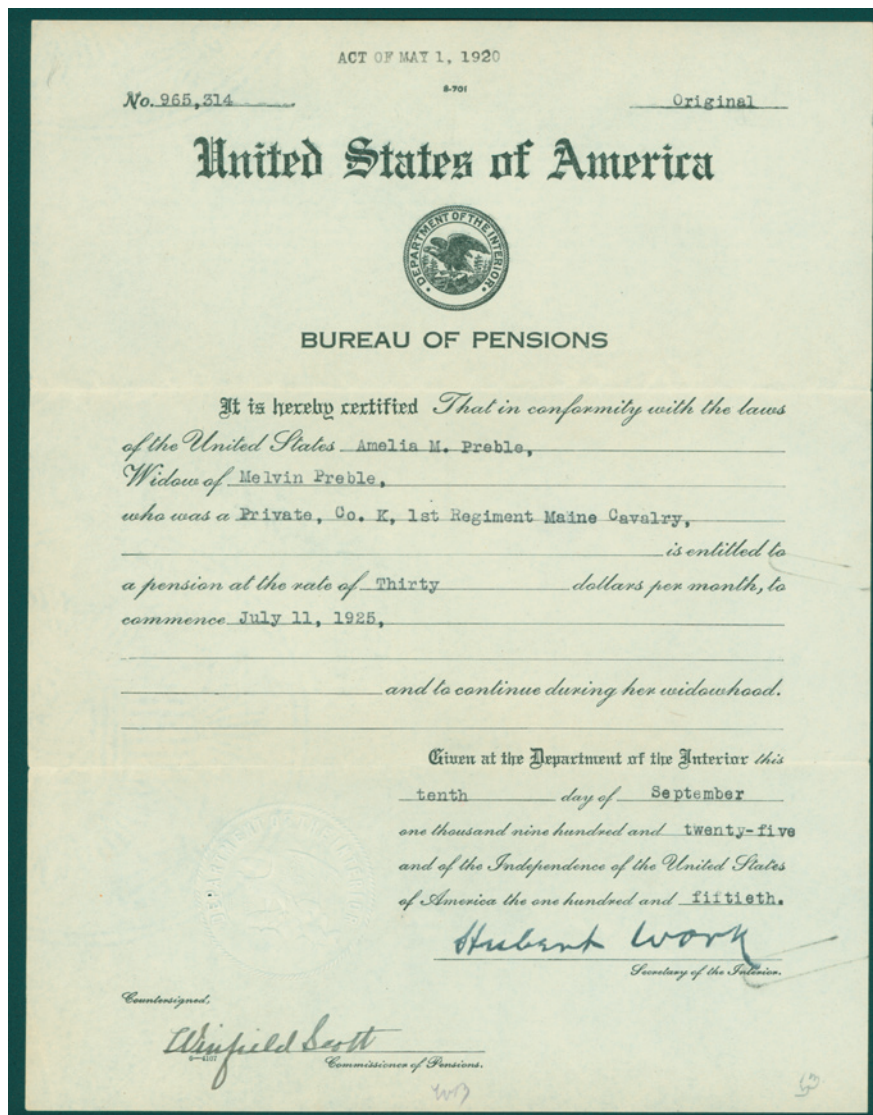 ACT OF MAY 1, 1920
8-701
No. 965,314
Original
United States of America
DEPARTMENT OF THE INTERIOR
BUREAU OF PENSIONS
It is hereby certified That in conformity with the laws
of the United States Amelia M. Preble,
Widow of Melvin Preble,
who was a Private, Co. K, 1st Regiment Maine Cavalry,
is entitled to
a pension at the rate of Thirty dollars per month, to
commence July 11, 1925,
and to continue during her widowhood.
Given at the Department of the Interior this
tenth day of September
one thousand nine hundred and twenty-five
and of the Independence of the United States
of America the one hundred and fiftieth.
Hubert Work
Secretary of the Interior.
Countersigned,
Winfield Scott
Commissioner of Pensions.